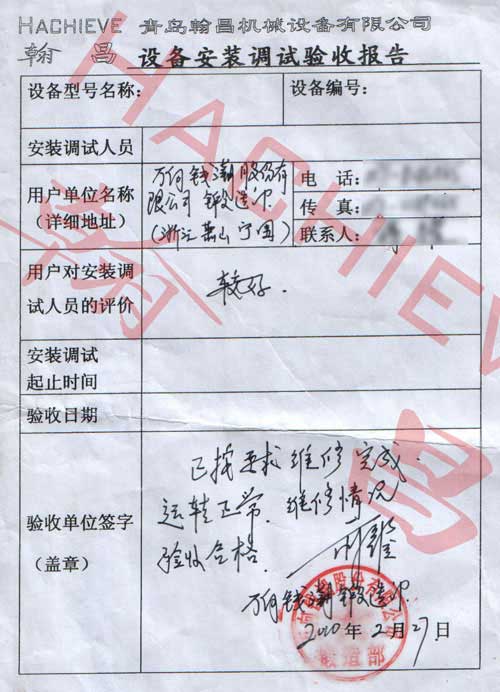 HACHIEVE 青岛翰昌机械设备有限公司
翰昌 设备安装调试验收报告
设备型号名称:
设备编号:
安装调试人员
用户单位名称
(详细地址)
万向钱潮股份有
限公司 锻造厂
(浙江萧山宁围)
电 话:
传 真:
联系人:
用户对安装调
试人员的评价
较好.
安装调试
起止时间
验收日期
验收单位签字
(盖章)
已按要求维修完成.
运转正常. 维修情况
验收合格.
万向钱潮锻造厂
2010年2月27日
HACHIEVE
翰昌
股份有限公司
锻造部